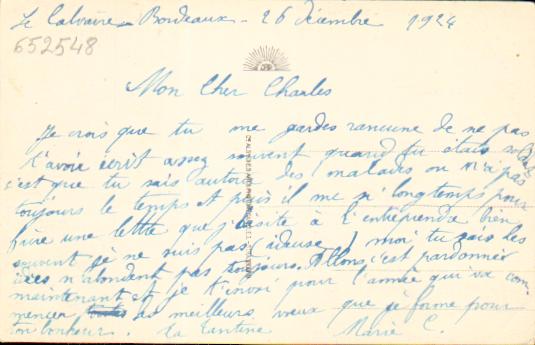 Le Calvaire - Bordeaux - 26 Décembre 1924
652548
Mon Cher Charles
Je crois que tu me gardes rancune de ne pas
t'avoir écrit assez souvent quand tu étais
c'est que tu sais autour des malades on n'a pas
toujours le temps et puis il me faut longtemps pour
faire une lettre que j'hésite à l'entreprendre bien
souvent je ne suis pas ( ) moi tu sais les
idées n'abondent pas toujours. Allons c'est pardonner
maintenant et je t'envoie pour l'année qui va com
mencer les meilleurs vœux que je forme pour
ton bonheur. ta tantine Marie C.